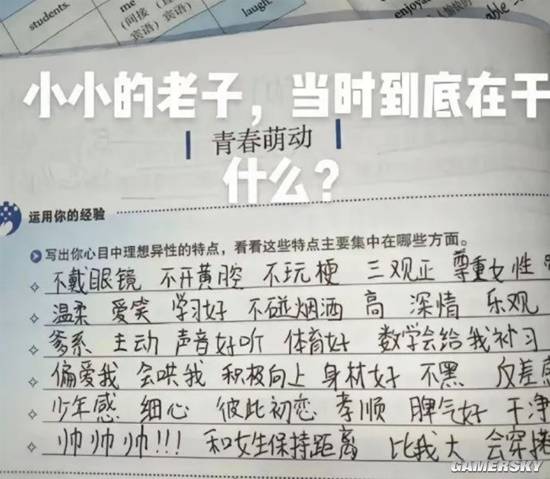 students.
me
(间接
宾语)
(直
宾语)
laugh.
enjoyable
able
小小的老子，当时到底在干
什么？
青春萌动
运用你的经验
写出你心目中理想异性的特点，看看这些特点主要集中在哪些方面。
不戴眼镜 不开黄腔 不玩梗 三观正 尊重女性
温柔 爱笑 学习好 不碰烟酒 高 深情 乐观
爹系 主动 声音好听 体育好 数学会给我补习
偏爱我 会哄我 积极向上 身材好 不黑 反差感
少年感 细心 彼此初恋 孝顺 脾气好 干净
帅帅帅!!! 和女生保持距离 比我大 会穿搭
GAMERSKY